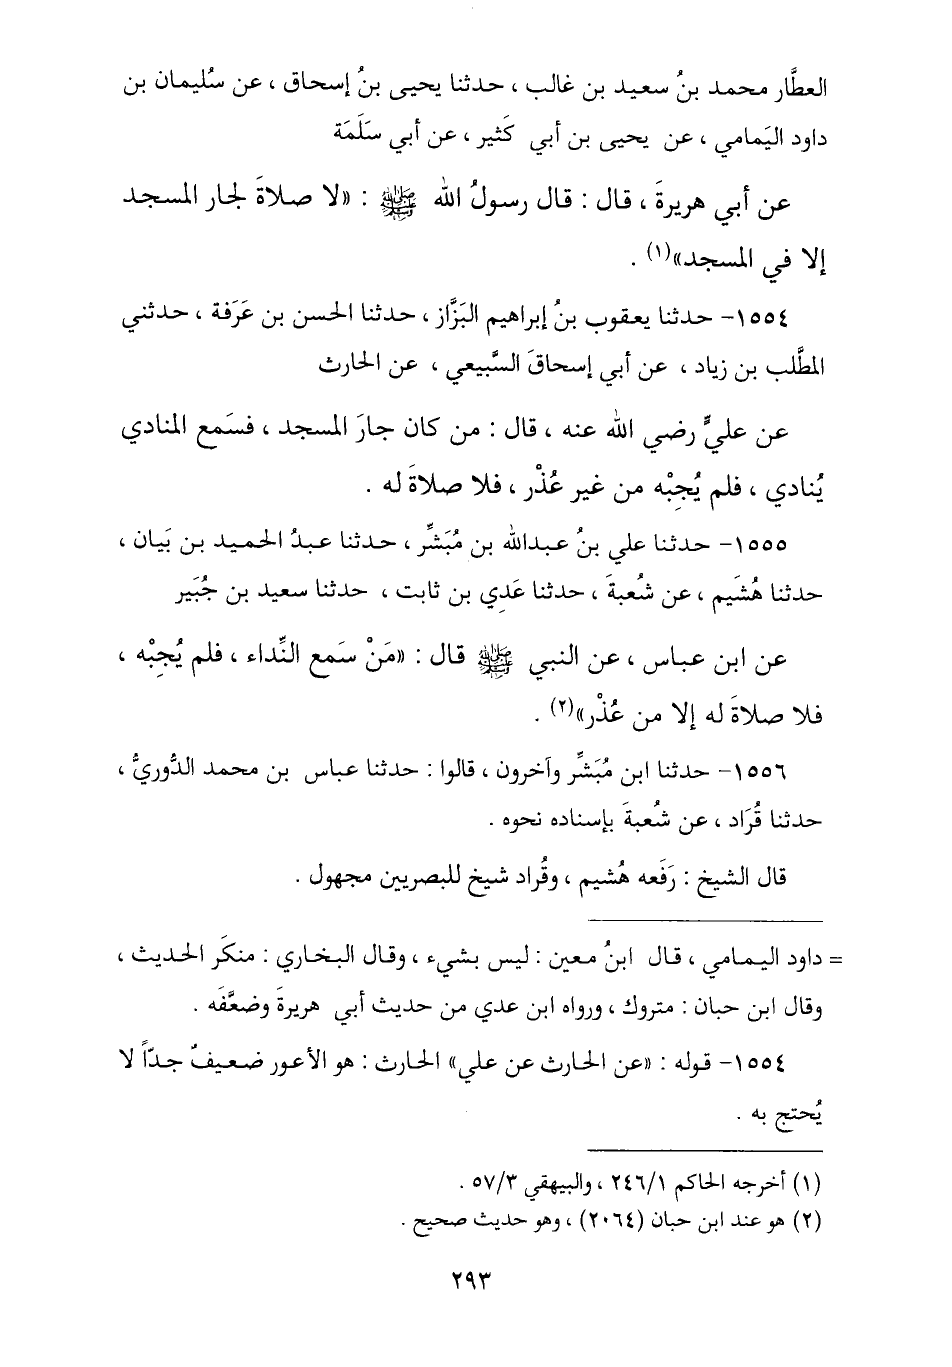 العطَّار محمد بنُ سعيد بن غالب ، حدثنا يحيى بنُ إسحاق ، عن سُليمان بن
داود اليَمامي ، عن يحيى بن أبي كَثير ، عن أبي سَلَمَة
عن أبي هريرةَ ، قال : قال رسولُ الله ﷺ : «لا صلاةَ لجار المسجد
إلا في المسجد»(١) .
١٥٥٤- حدثنا يعقوب بنُ إبراهيم البَزَّاز ، حدثنا الحسن بن عَرَفة ، حدثني
المطَّلب بن زياد ، عن أبي إسحاقَ السَّبيعي ، عن الحارث
عن عليٍّ رضي الله عنه ، قال : من كان جارَ المسجد ، فسَمع المنادي
يُنادي ، فلم يُجِبْه من غير عُذْر ، فلا صلاةَ له .
١٥٥٥- حدثنا علي بنُ عبدالله بن مُبَشِّر ، حدثنا عبدُ الحميد بن بَيان ،
حدثنا هُشَيم ، عن شُعبةَ ، حدثنا عَدِي بن ثابت ، حدثنا سعيد بن جُبَير
عن ابن عباس ، عن النبي ﷺ قال : «مَنْ سَمع النِّداء ، فلم يُجِبْه ،
فلا صلاةَ له إلا من عُذْر»(٢) .
١٥٥٦- حدثنا ابن مُبَشِّر وآخرون ، قالوا : حدثنا عباس بن محمد الدُّوريُّ ،
حدثنا قُرَاد ، عن شُعبةَ بإسناده نحوه .
قال الشيخ : رَفَعه هُشيم ، وقُراد شيخ للبصريين مجهول .
= داود اليمامي ، قال ابنُ معين : ليس بشيء ، وقال البخاري : منكَر الحديث ،
وقال ابن حبان : متروك ، ورواه ابن عدي من حديث أبي هريرةَ وضعَّفَه .
١٥٥٤- قوله : «عن الحارث عن علي» الحارث : هو الأعور ضعيفٌ جدّاً لا
يُحتج به .
(١) أخرجه الحاكم ٢٤٦/١ ، والبيهقي ٥٧/٣ .
(٢) هو عند ابن حبان (٢٠٦٤) ، وهو حديث صحيح .
٢٩٣